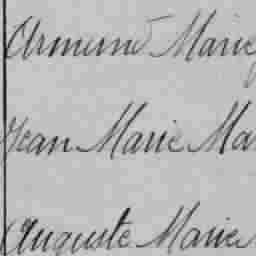 Armand Marie
Jean Marie Ma
Auguste Marie